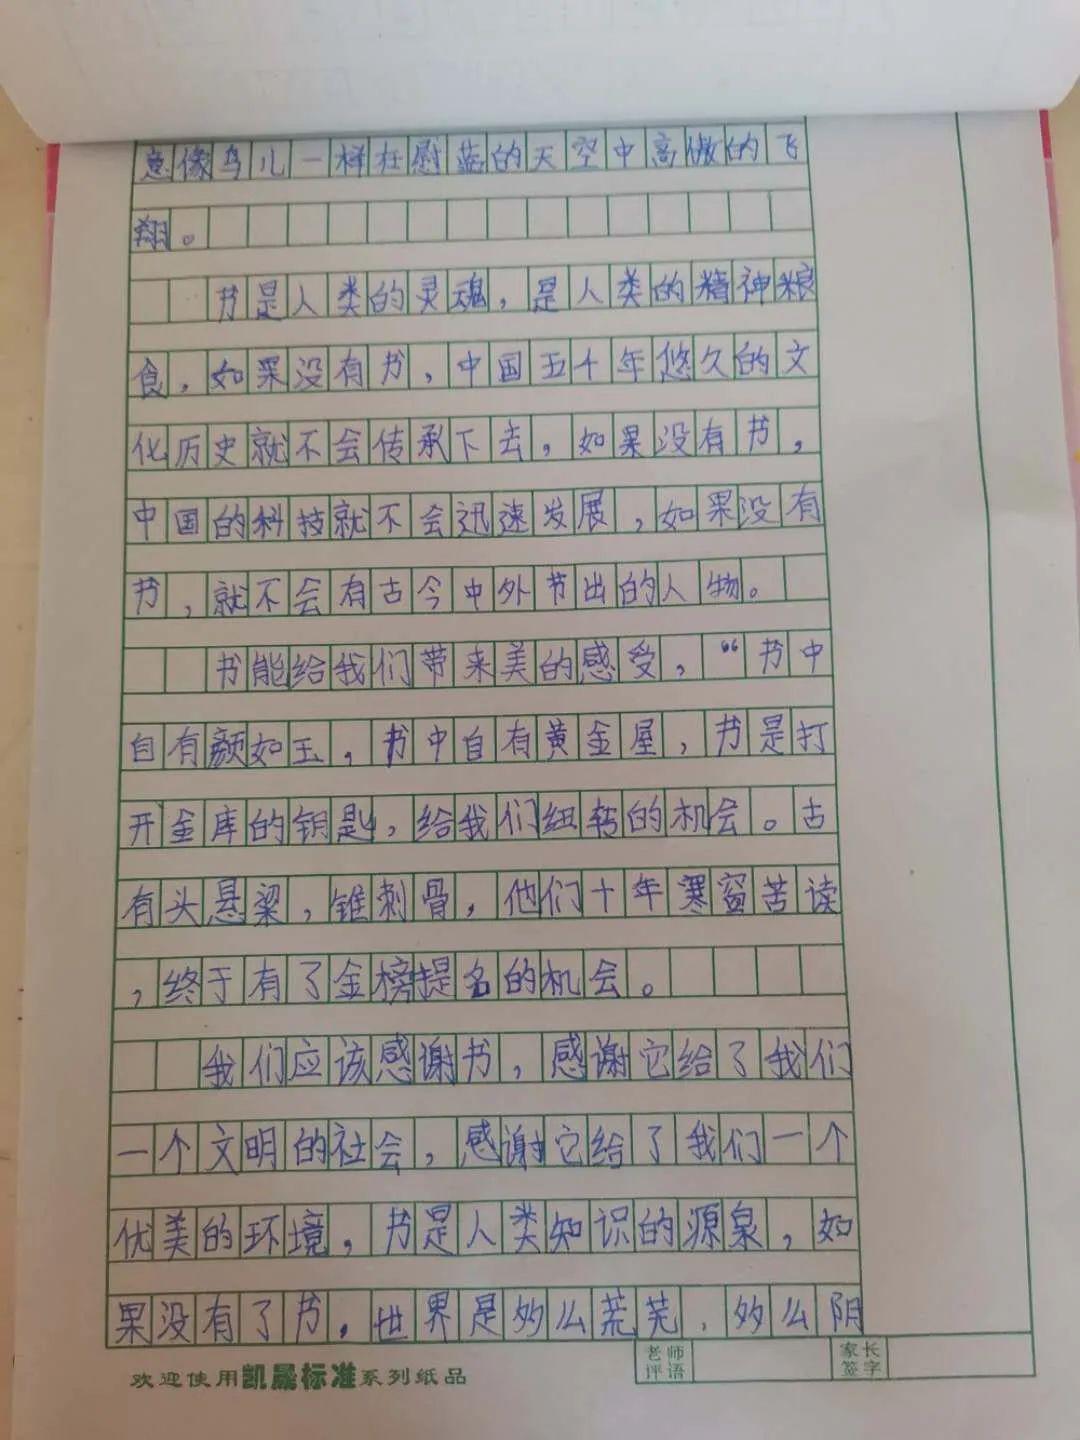 意像鸟儿一样在慰蓝的天空中高傲的飞
翔。
书是人类的灵魂，是人类的精神粮
食，如果没有书，中国五千年悠久的文
化历史就不会传承下去，如果没有书，
中国的科技就不会迅速发展，如果没有
书，就不会有古今中外节出的人物。
书能给我们带来美的感受，“书中
自有颜如玉，书中自有黄金屋，书是打
开金库的钥匙，给我们纽转的机会。古
有头悬梁，锥刺骨，他们十年寒窗苦读
，终于有了金榜提名的机会。
我们应该感谢书，感谢它给了我们
一个文明的社会，感谢它给了我们一个
优美的环境，书是人类知识的源泉，如
果没有了书，世界是多么荒芜，多么阴
老师评语
家长签字
欢迎使用凯晟标准系列纸品